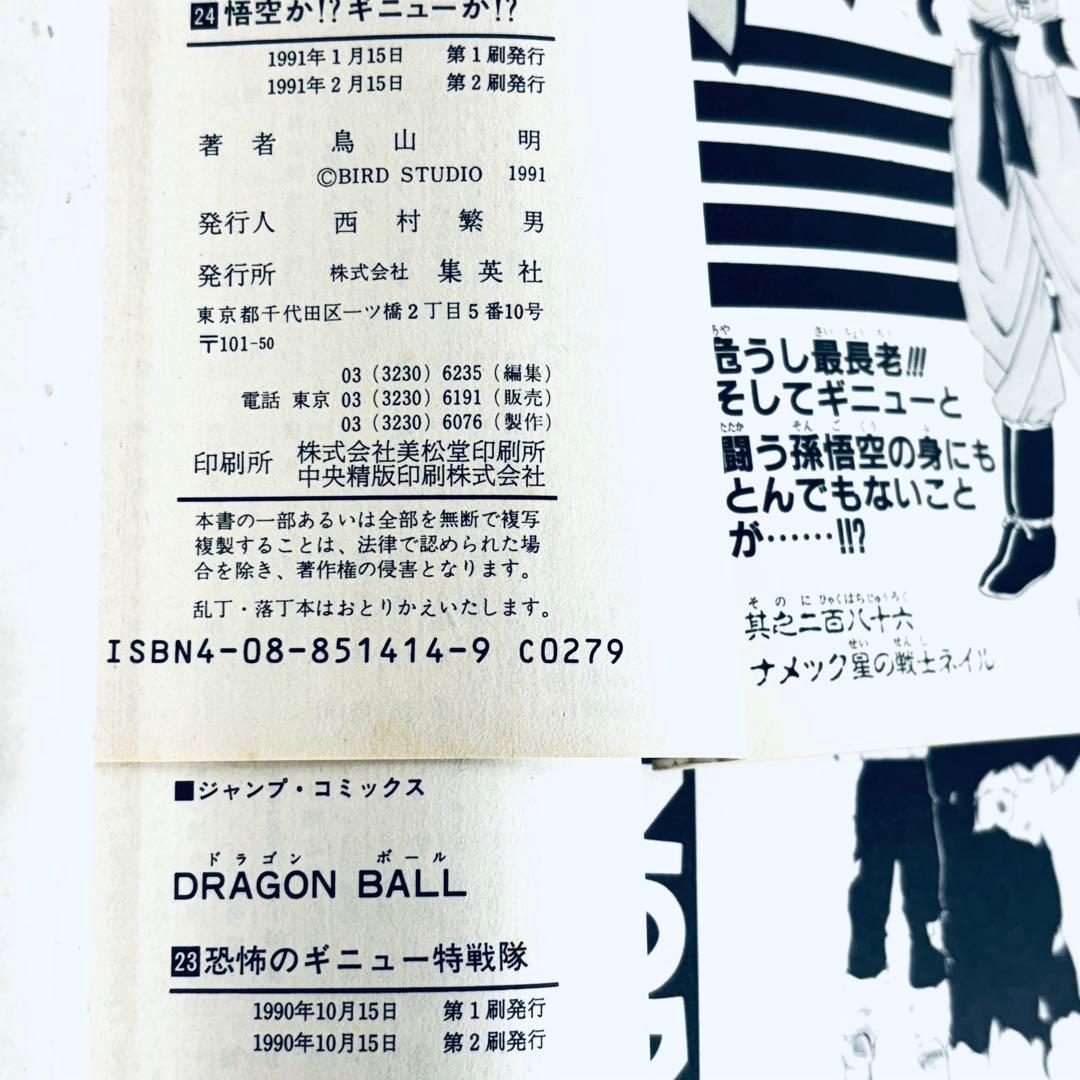 24 悟空か!?ギニューか!?
1991年1月15日 第1刷発行
1991年2月15日 第2刷発行
著者 鳥山 明
©BIRD STUDIO 1991
発行人 西村繁男
発行所 株式会社 集英社
東京都千代田区一ツ橋2丁目5番10号
〒101-50
03(3230)6235(編集)
電話 東京 03(3230)6191(販売)
03(3230)6076(製作)
印刷所 株式会社美松堂印刷所
中央精版印刷株式会社
本書の一部あるいは全部を無断で複写
複製することは、法律で認められた場
合を除き、著作権の侵害となります。
乱丁・落丁本はおとりかえいたします。
ISBN4-08-851414-9 C0279
危うし最長老!!!
そしてギニューと
闘う孫悟空の身にも
とんでもないこと
が……!!?
そのにひゃくはちじゅうろく
其之二百八十六
せい せんし
ナメック星の戦士ネイル
■ジャンプ・コミックス
ドラゴン ボール
DRAGON BALL
23 恐怖のギニュー特戦隊
1990年10月15日 第1刷発行
1990年10月15日 第2刷発行